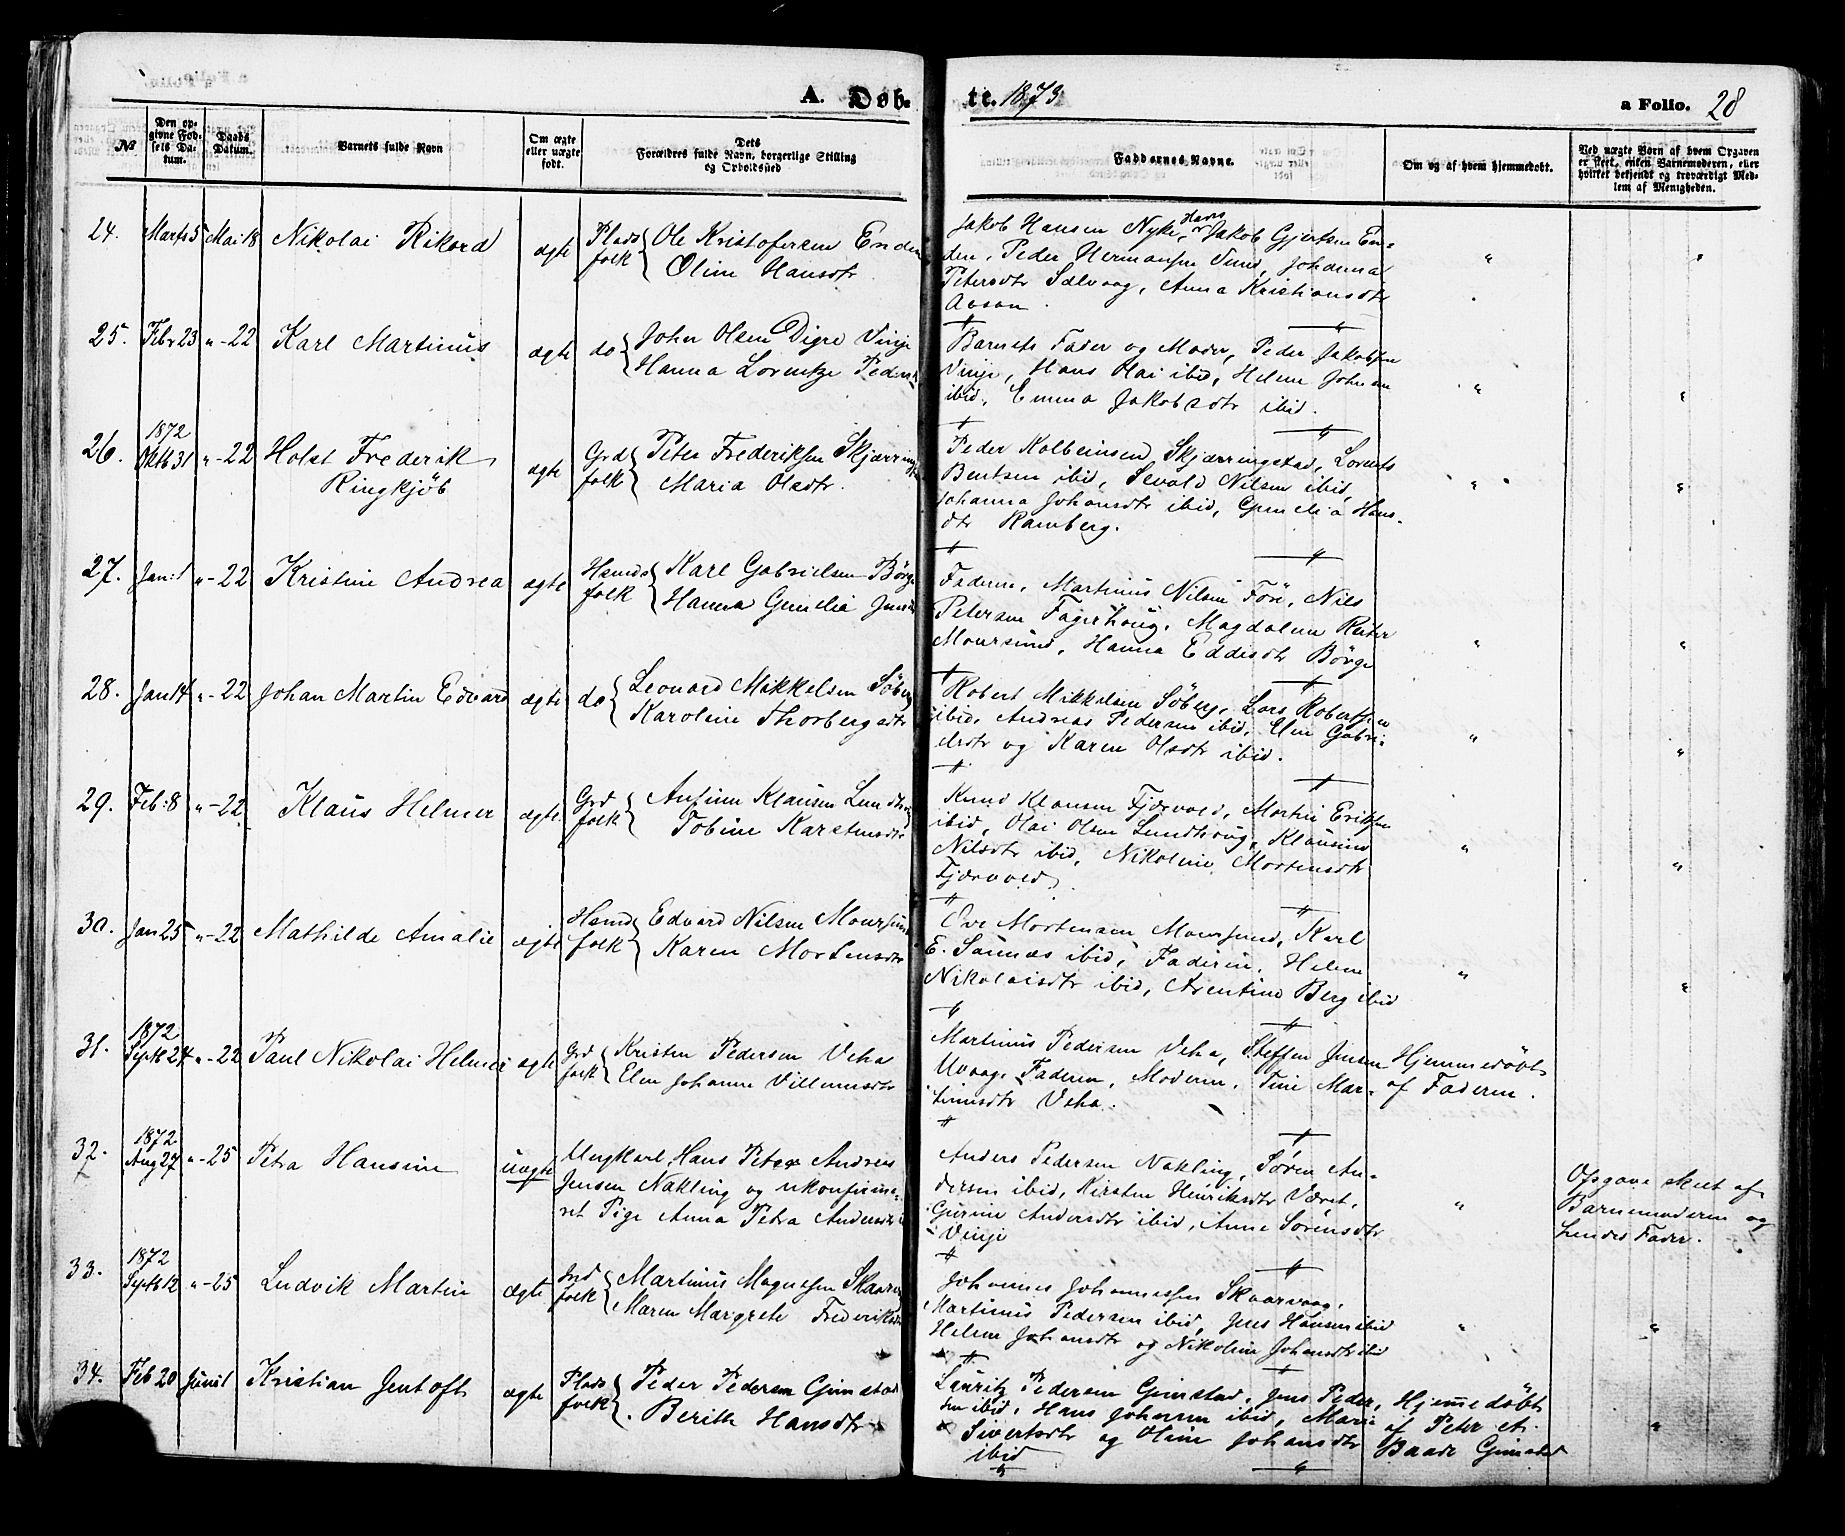 A. Døb- te. 1873 a Folio. 28
№ Den opgivne Fødsels Datum. Daabs Datum. Barnets fulde Navn Om ægte eller uægte født. Dets Forældres fulde Navn, borgerlige Stilling og Opholdssted Faddernes Navne. Om og af hvem hjemmedøbt. Ved uægte Børn af hvem Opgaven er skeet, enten Barnemoderen, eller hvilket bekjendt og troværdigt Medlem af Menigheden.
24. Marts 5 Mai 18 Nikolai Rikard ægte Plads folk Ole Kristofersen Enden
Oline Hansdtr
Jakob Hansen Nyke, Jakob Gjertsen En-
den, Peder Hermansen Vind, Johanna
Petersdtr Sælvaag, Anna Kristiansdtr
25. Febr 23 " - 22 Karl Martinus ægte do John Olsen Digre Vinje
Hanna Lorentze Peders
Barnets Fader og Moder, Peder Jakobsen
Vinje, Hans Olai ibid, Helene Johnsen
ibid, Emma Jakobsdtr ibid.
26. 1872 Oktb 31 " - 22 Holst Frederik
Ringkjøb
ægte Grd folk Peter Frederiksen Skjærring
Maria Olsdtr.
Peder Kolbeinsen Skjærringstad, Lorents
Bentsen ibid, Sevald Nilsen ibid,
Johanna Johansdtr ibid, Gunelia Hans-
dtr Ramberg.
27. Jan: 1 " - 22 Kristine Andrea ægte Hsmds folk Karl Gabrielsen Børge
Hanna Gunelia Jens
Faderen, Martinus Nilsen Føre, Nils
Petersen Fagerhoug, Magdalena Reiter
Moursund, Hanna Eddisdtr Børge
28. Jan 14 " - 22 Johan Martin Edvard ægte do Leonard Mikkelsen Søberg
Karoline Thorbergsdtr
Robert Mikkelsen Søberg, Lars Robertsen
ibid, Andreas Pedersen ibid, Elen Gabri-
elsdtr og Karen Olsdtr ibid.
29. Feb: 8 " - 22 Klaus Helmer ægte Grd folk Antinn Klausen Lundhoug
Tobine Karstensdtr
Knud Klausen Fjærvold, Martin Eriksen
ibid, Olai Olsen Lundhoug, Klausine
Nilsdtr ibid, Nikoline Mortensdtr
Fjærvold
30. Jan 25 " - 22 Mathilde Amalie ægte Hsmd folk Edvard Nilsen Moursund
Karen Mortensdtr
Ove Mortensen Moursund, Karl
E. Saunæs ibid, Faderen, Helene
Nikolaisdtr ibid, Arentine Berg ibid
31. 1872 Septb 24 " - 22 Paul Nikolai Helmer ægte Grd folk Kristen Pedersen Veha
Elen Johanne Villumsdtr
Martinus Pedersen Veha, Steffen Jensen
Uvaag, Faderen, Moderen, Tine Mar-
tinusdtr Veha.
Hjemmedøbt
af Faderen.
32. 1872 Aug 27 " - 25 Petra Hansine uægte Ungkarl, Hans Peter Andreas
Jensen Nakling og ukonfirme-
ret Pige Anna Petra Andersdtr
Anders Pedersen Nakling, Søren An-
dersen ibid, Kirsten Henriksdtr Været,
Gurine Andersdtr ibid, Anne Sørensdtr
Vinje
Opgave skeet af
Barnemoderen og
hendes Fader.
33. 1872 Septb 12 " - 25 Ludvik Martin ægte Grd folk Martinus Magnussen Skaarv
Maren Margrete Frederiks
Johannes Johannessen Skaarvaag,
Martinus Pedersen ibid, Jens Hansen ibid
Helene Johansdtr og Nikoline Johansdtr ibid
34. Feb 20 Juni 1 Kristian Jentoft ægte Plads folk Peder Pedersen Gimstad
Berith Hansdtr
Lauritz Pedersen Gimstad, Jens Peder-
sen ibid, Hans Johansen ibid, Marie
Sivertsdtr og Oline Johansdtr
ibid
Hjemmedøbt
af Peter A.
Baade Gimstad